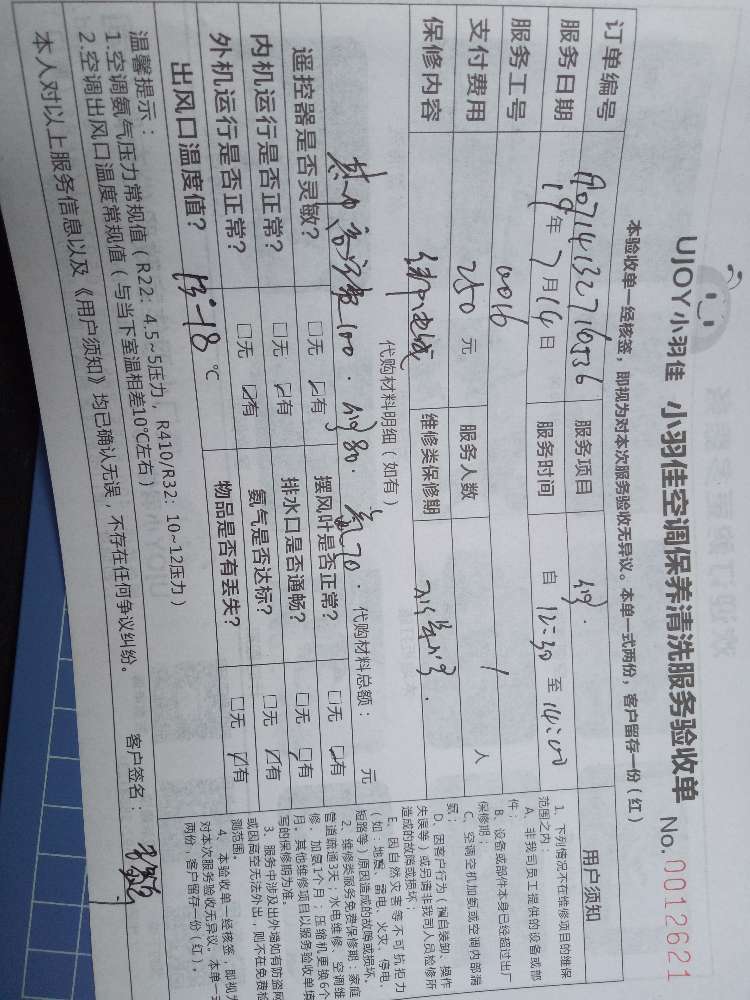 UJOY小羽佳 小羽佳空调保养清洗服务验收单 No.0012621
本验收单一经核签，即视为对本次服务验收无异议。本单一式两份，客户留存一份（红）
订单编号 服务项目
服务日期 19年7月14日 服务时间 自12:30至14:00
服务工号 0016
支付费用 250元 服务人数 1人
保修内容 维修类保修期
代购材料明细（如有）
100. 80. 氨70. 代购材料总额： 元
遥控器是否灵敏？ □无 ☑有 摆风叶是否正常？ □无 ☑有
内机运行是否正常？ □无 ☑有 排水口是否通畅？ □无 ☑有
外机运行是否正常？ □无 ☑有 氨气是否达标？ □无 ☑有
出风口温度值？ 15-18℃ 物品是否有丢失？ □无 ☑有
温馨提示：
1.空调氨气压力常规值（R22：4.5~5压力，R410/R32：10~12压力）
2.空调出风口温度常规值（与当下室温相差10℃左右）
本人对以上服务信息以及《用户须知》均已确认无误，不存在任何争议纠纷。 客户签名：
用户须知
1、下列情况不在维修项目的维保
范围之内：
A、非我司员工提供的设备或部
件；
B、设备或部件本身已经超过出厂
保修期；
C、空调空机加氨或空调内部漏
氨；
D、因客户行为（擅自装卸、操作
失误等）或另请非我司人员检修所
造成的故障或损坏；
E、因自然灾害等不可抗拒力
（如：地震、雷电、火灾、停电、
短路等）原因造成的故障或损坏。
2、维修类服务免费保修期：家庭
管道疏通3天；水电维修、空调维
修、加氨1个月；压缩机更换6个
月。其他维修项目以服务验收单填
写的保修期为准。
3、服务中涉及出外墙如有防盗网
或因高空无法外出，则不在免费检
测范围
4、本验收单一经核签，即视为
对本次服务验收无异议。本单一式
两份，客户留存一份（红）。